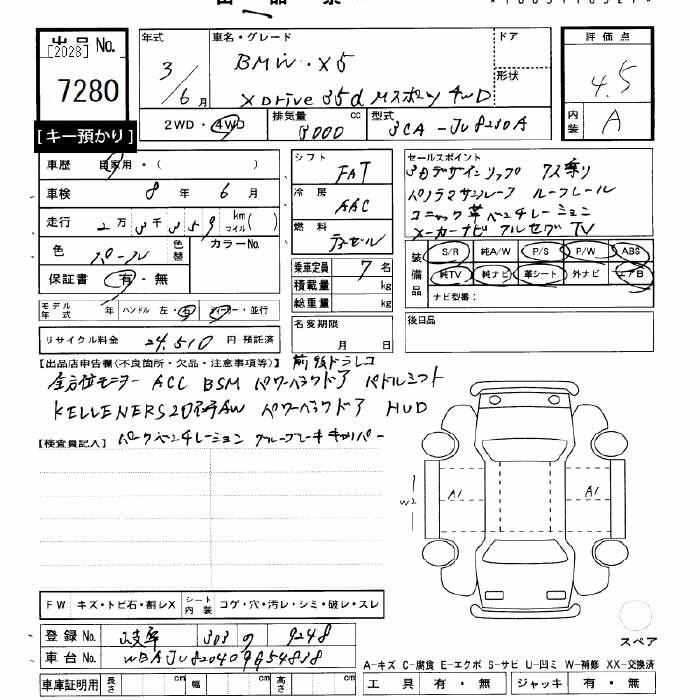 [2028]
出品 No. 7280
[キー預かり]
年式 3/6月
車名・グレード BMW・X5
XDrive 35d Mスポーツ 4WD
ドア
形状
評価点 4.5
内装 A
2WD・4WD
排気量 3000 cc
型式 3CA-JU8230A
車歴 自家用・( )
車検 8年 6月
走行 2万3千359 km マイル( )
色 パール 色替
カラーNo.
保証書 有・無
シフト FAT
冷房 AAC
燃料 ディーゼル
乗車定員 7名
積載量 kg
総重量 kg
名変期限 月 日
セールスポイント
3Dデザインリップ 7人乗り
パノラマサンルーフ ルーフレール
コニャック革 ベンチレーション
メーカーナビ フルセグTV
装備品 S/R 純A/W P/S P/W ABS
純TV 純ナビ 革シート 外ナビ エアB
ナビ型番:
後日品
モデル年式 年 ハンドル 左・右 ディーラー・並行
リサイクル料金 24,510 円 預託済
【出品店申告欄(不良箇所・欠品・注意事項等)】 前後ドラレコ
全方位モニター ACC BSM パワーバックドア パドルシフト
KELLENERS20吋AW パワーバックドア HUD
【検査員記入】 パークベンチレーション ブルーブレーキキャリパー
W2
A1
A1
FW キズ・トビ石・割レX
シート内装 コゲ・穴・汚レ・シミ・破レ・スレ
登録 No. 岐阜 303 の 9248
車台 No. WBAJU820409G54838
車庫証明用 長さ cm 幅 cm 高さ cm
スペア
A-キズ C-腐食 E-エクボ S-サビ U-凹ミ W-補修 XX-交換済
工具 有・無 ジャッキ 有・無